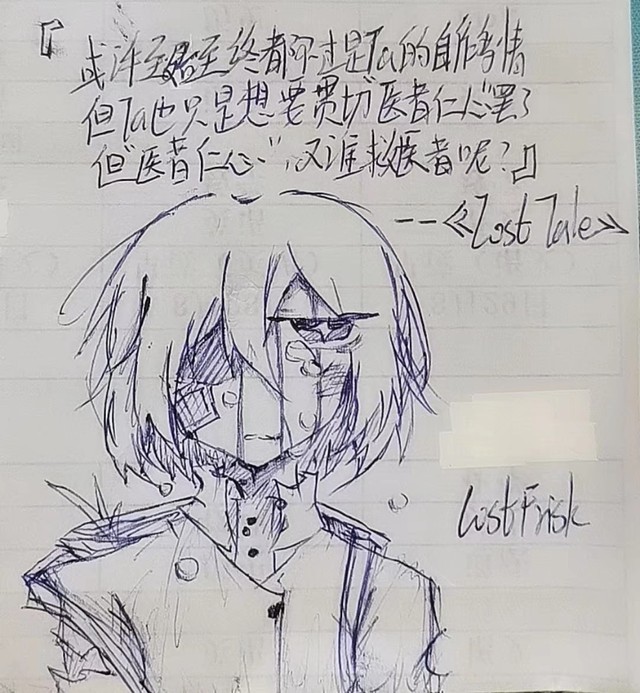 『或许至始至终都不过是Ta的自作多情
但Ta也只是想要贯切医者仁心罢了
但“医者仁心”,又谁救医者呢?』
--《Lost Tale》
Lost Frisk